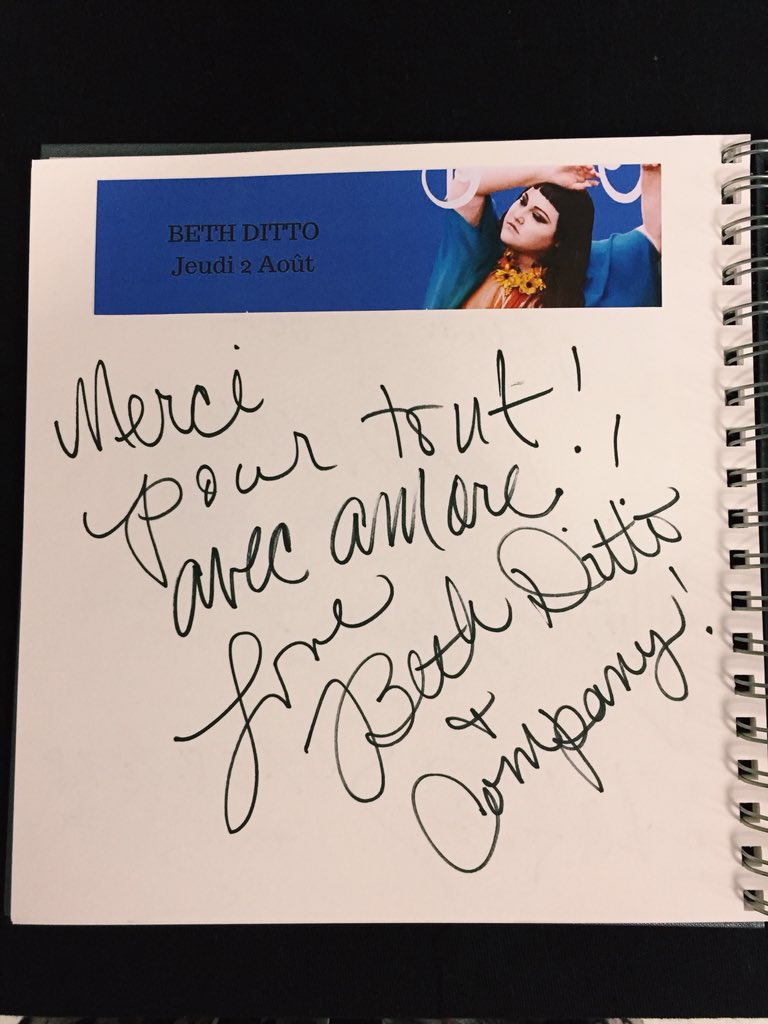 BETH DITTO
Jeudi 2 Août
Merci
pour tout!
avec amore!
Love
Beth Ditto
+
Company!